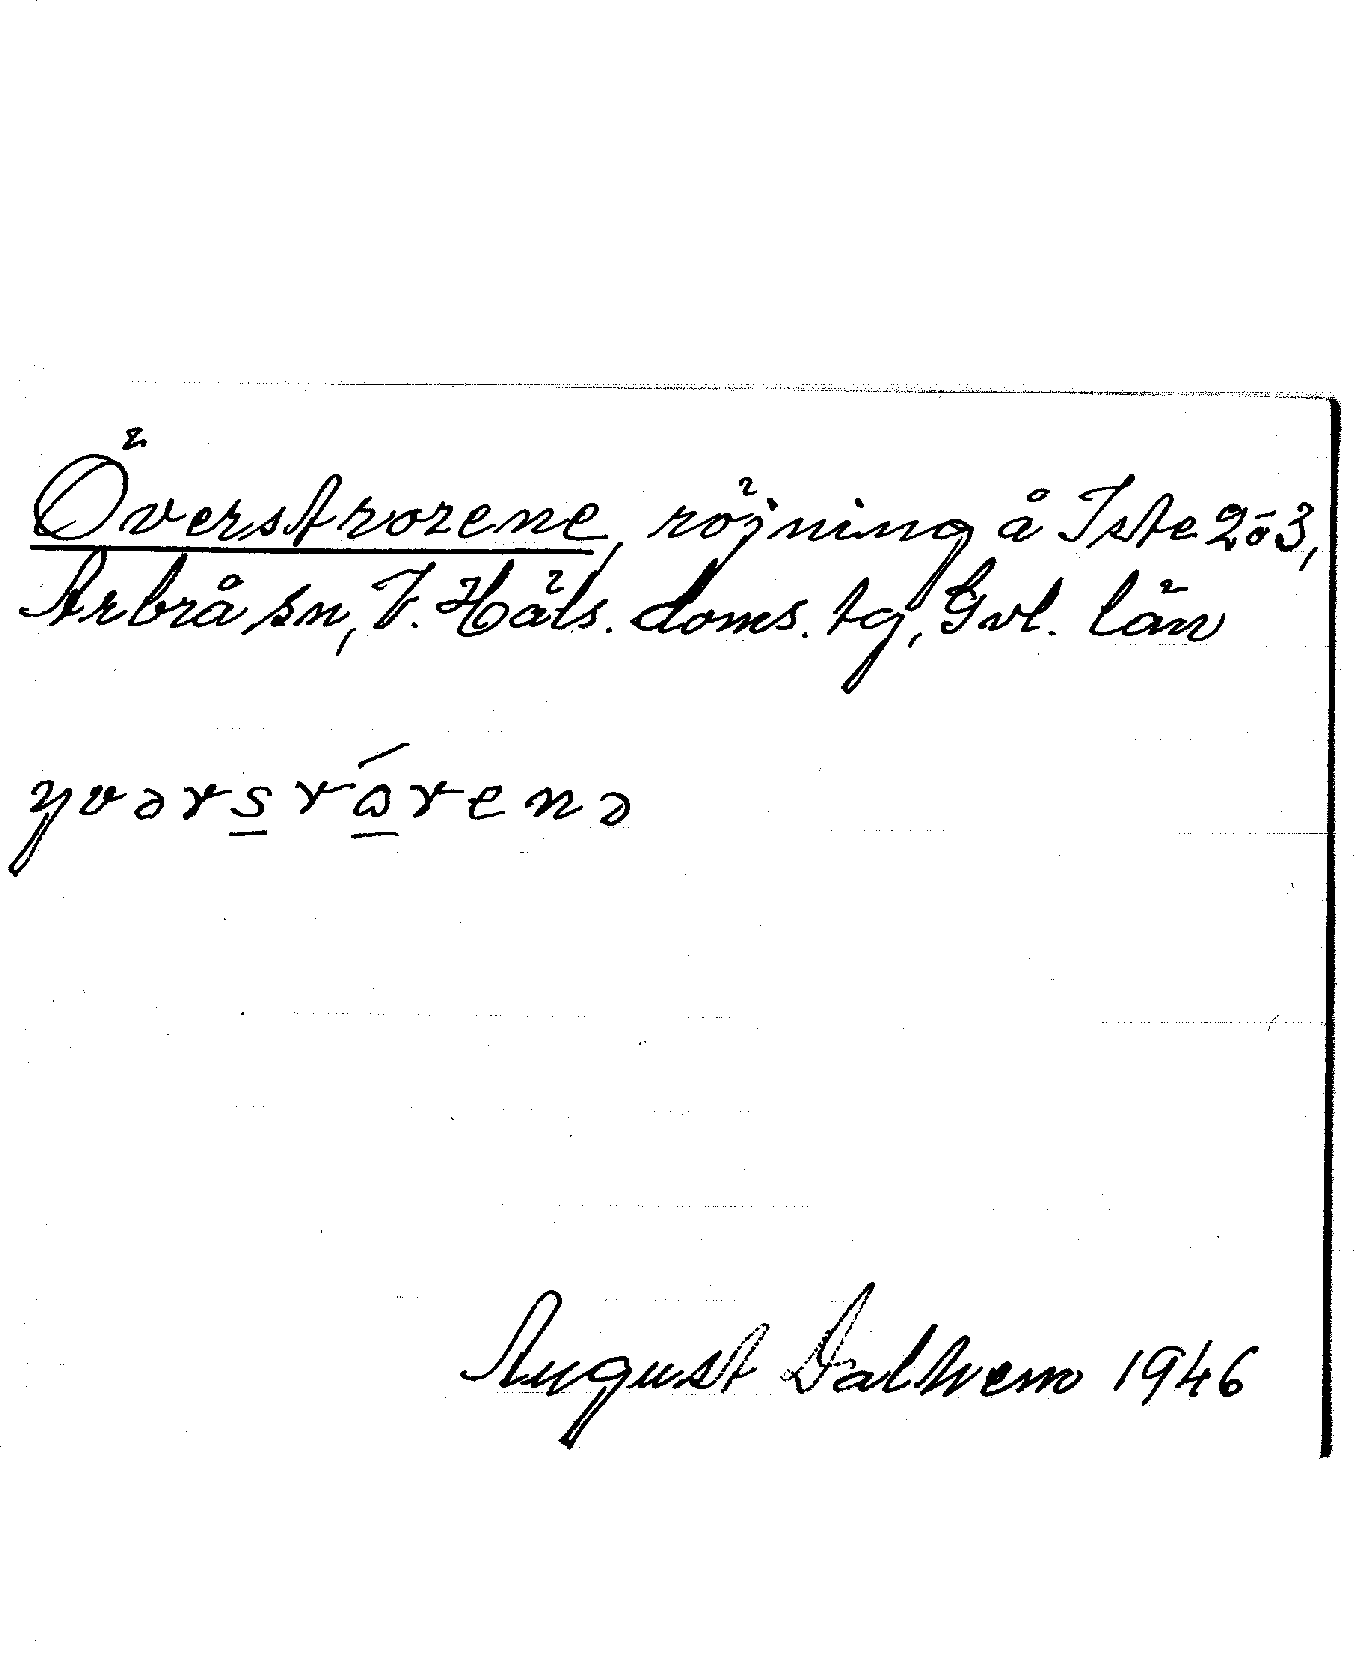 Överstrorene, röjning å Iste 2ō3,
Arbrå sn, V. Häls. doms. tg, Gvl. län
yvərsrɷ́renə
August Dalhem 1946